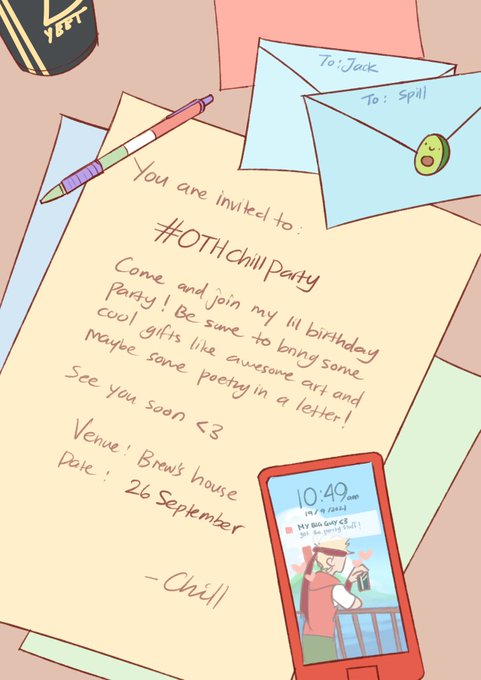 YEET
To: Jack
To: Spill
You are invited to:
#OTHchillParty
Come and join my lil birthday
Party! Be sure to bring some
cool gifts like awesome art and
maybe some poetry in a letter!
See you soon <3
Venue: Brew's house
Date: 26 September
- Chill
10:49am
19/9/2021
MY BIG GUY <3
got the party stuff!